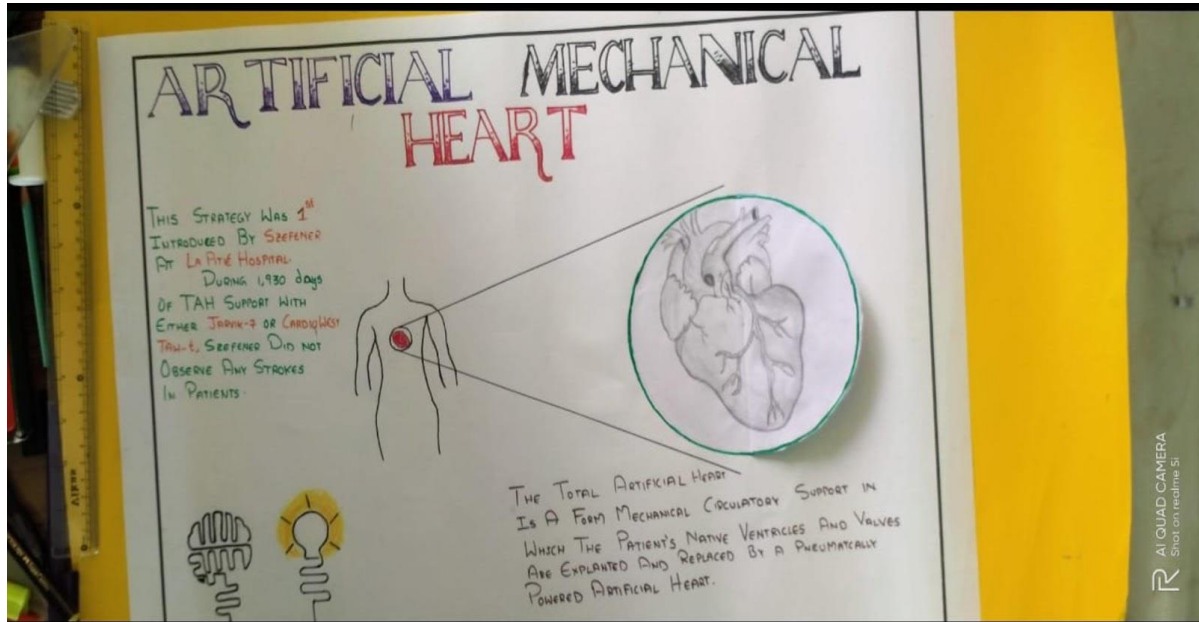 ARTIFICIAL MECHANICAL
HEART
THIS STRATEGY WAS 1st
INTRODUCED BY SZEFENER
AT LA PITIÉ HOSPITAL.
DURING 1,930 days
OF TAH SUPPORT WITH
EITHER JARVIK-7 OR CARDIOWEST
TAW-t, SZEFENER DID NOT
OBSERVE ANY STROKES
IN PATIENTS.
THE TOTAL ARTIFICIAL HEART
IS A FORM MECHANICAL CIRCULATORY SUPPORT IN
WHICH THE PATIENT'S NATIVE VENTRICLES AND VALVES
ARE EXPLANTED AND REPLACED BY A PNEUMATCALLY
POWERED ARTIFICIAL HEART.
AI QUAD CAMERA
Shot on realme 5i